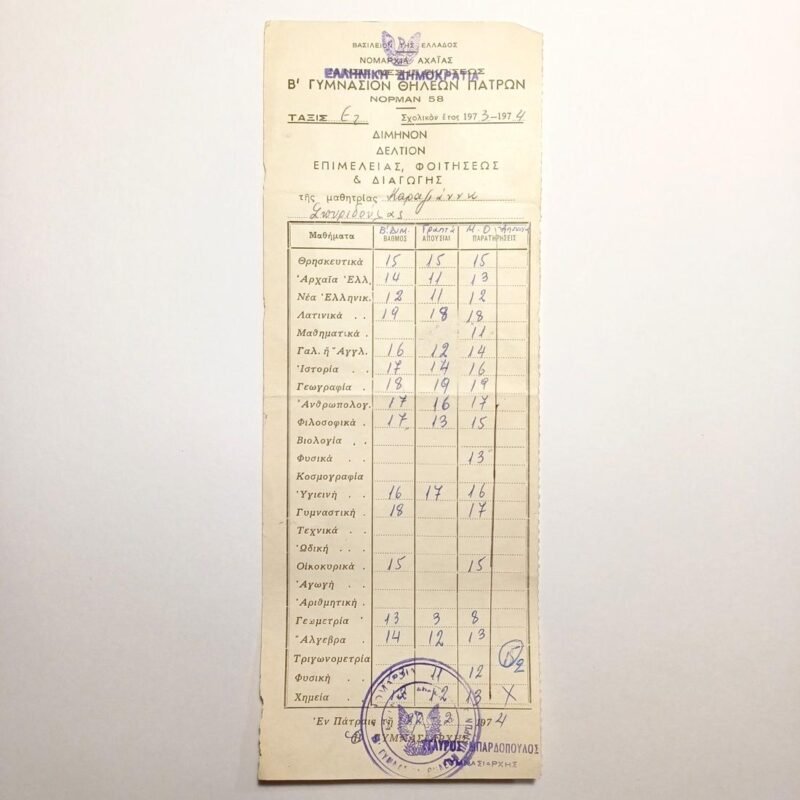 ΒΑΣΙΛΕΙΟΝ ΤΗΣ ΕΛΛΑΔΟΣ
ΝΟΜΑΡΧΙΑ ΑΧΑΪΑΣ
ΕΛΛΗΝΙΚΗ ΔΗΜΟΚΡΑΤΙΑ
Β' ΓΥΜΝΑΣΙΟΝ ΘΗΛΕΩΝ ΠΑΤΡΩΝ
ΝΟΡΜΑΝ 58
ΤΑΞΙΣ Ε2 Σχολικὸν ἔτος 1973-1974
ΔΙΜΗΝΟΝ
ΔΕΛΤΙΟΝ
ΕΠΙΜΕΛΕΙΑΣ, ΦΟΙΤΗΣΕΩΣ
& ΔΙΑΓΩΓΗΣ
τῆς μαθητρίας
Μαθήματα Β' Διμ. ΒΑΘΜΟΣ Γραπτά ΑΠΟΥΣΙΑΙ Μ.Ο. ΠΑΡΑΤΗΡΗΣΕΙΣ
Θρησκευτικὰ 15 15 15
Ἀρχαῖα Ἑλλ. 14 11 13
Νέα Ἑλληνικ. 12 11 12
Λατινικὰ . . 19 18 18
Μαθηματικὰ . 11
Γαλ. ἢ Ἀγγλ. 16 12 14
Ἱστορία . . 17 14 16
Γεωγραφία . 18 19 19
Ἀνθρωπολογ. 17 16 17
Φιλοσοφικὰ . 17 13 15
Βιολογία . .
Φυσικὰ . . 13
Κοσμογραφία
Ὑγιεινὴ . . 16 17 16
Γυμναστικὴ . 18 17
Τεχνικὰ . .
Ὠδικὴ . . .
Οἰκοκυρικὰ . 15 15
Ἀγωγὴ . .
Ἀριθμητικὴ .
Γεωμετρία 13 3 8
Ἄλγεβρα . 14 12 13
Τριγωνομετρία
Φυσικὴ . . 11 12
Χημεία . . 12 13 X
Ἐν Πάτραις τῇ 1974
ΓΥΜΝΑΣΙΑΡΧΗΣ
ΣΤΑΥΡΟΣ ΜΠΑΡΔΟΠΟΥΛΟΣ
ΓΥΜΝΑΣΙΑΡΧΗΣ